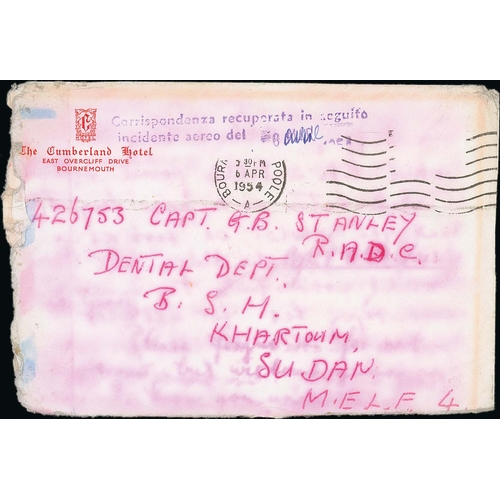 Corrispondenza recuperata in seguito
incidente aereo del
The Cumberland Hotel
EAST OVERCLIFF DRIVE
BOURNEMOUTH
BOURN POOLE
5 30 PM
6 APR
1954
A
426753 CAPT. G.B. STANLEY
R.A.D.C.
DENTAL DEPT.
B.S.H.
KHARTOUM,
SUDAN.
M.E.L.F. 4